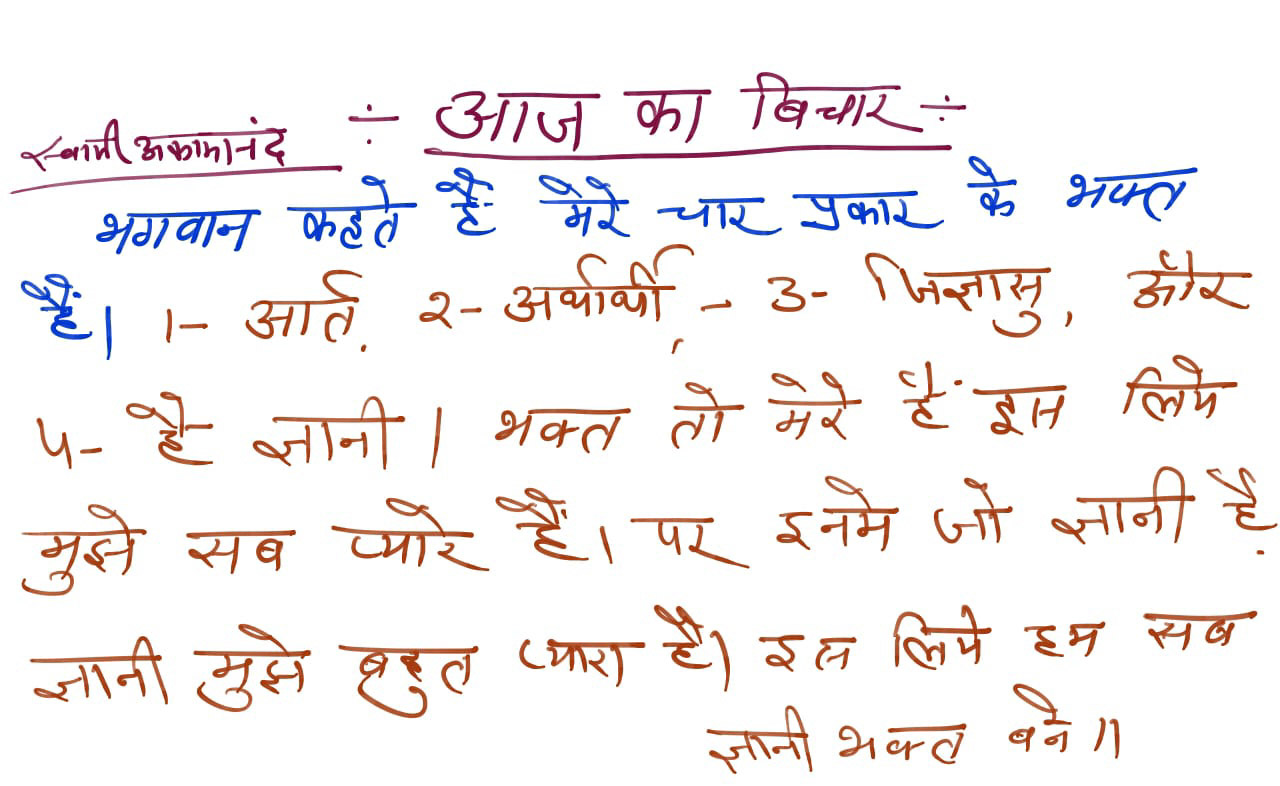 ÷ आज का बिचार ÷
स्वामी अकामानंद
भगवान कहते हैं मेरे चार प्रकार के भक्त
हैं। १- आर्त, २- अर्थार्थी, - ३- जिज्ञासु, और
४- है ज्ञानी । भक्त तो मेरे हैं इस लिये
मुझे सब प्यारे हैं। पर इनमे जो ज्ञानी है,
ज्ञानी मुझे बहुत प्यारा है। इस लिये हम सब
ज्ञानी भक्त बने ॥